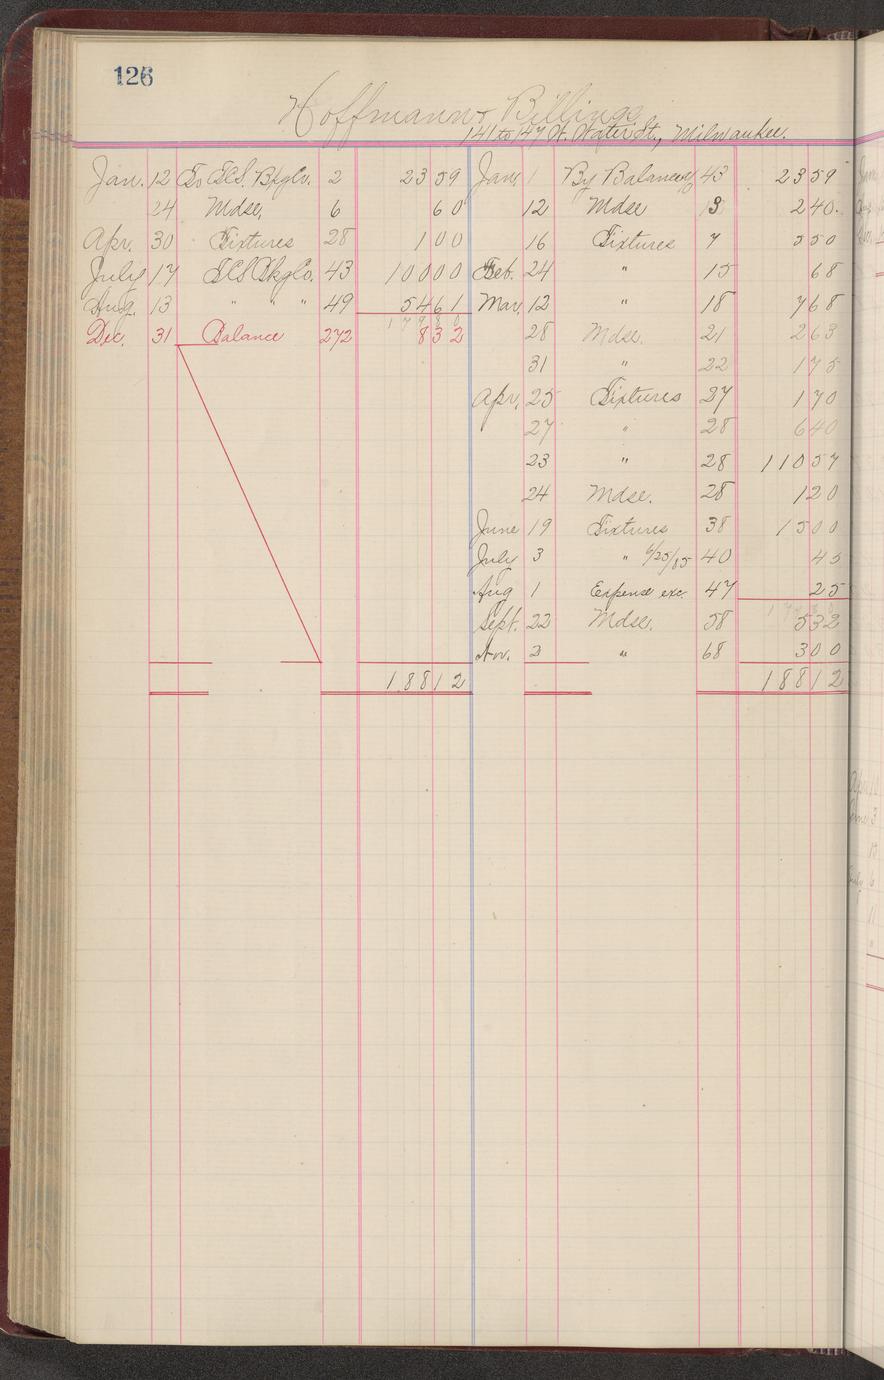 126
Hoffmann & Billings
141 to 147 W. Water St., Milwaukee.
Jan. 12 To 2 2359 Jan. 1 By Balance 43 2359
24 Mdse. 6 60 12 Mdse 3 240.
Apr. 30 Fixtures 28 100 16 Fixtures 7 550
July 17 43 10000 Feb. 24 " 15 68
Aug. 13 " " " 49 5461 Mar. 12 " 18 768
17980
Dec. 31 Balance 272 832 28 Mdse. 21 263
31 " 22 175
Apr. 25 Fixtures 27 170
27 " 28 640
23 " 28 11057
24 Mdse. 28 120
June 19 Fixtures 38 1500
July 3 " 6/25/85 40 45
Aug 1 Expense exc. 47 25
17980
Sept. 22 Mdse. 58 532
Nov. 2 " 68 300
18812 18812